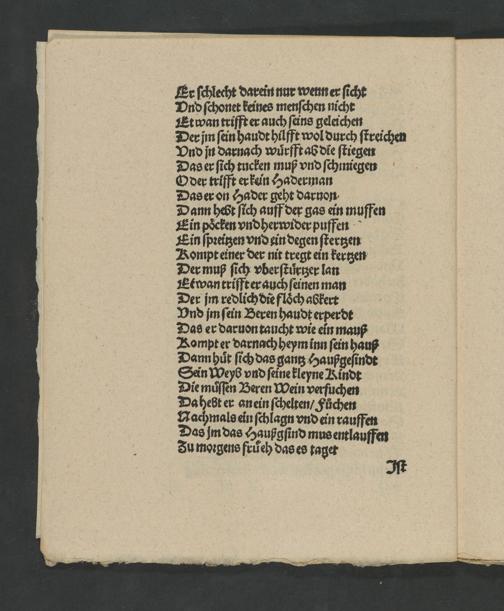 Er schlecht darein nur wenn er sicht
Vnd schonet keines menschen nicht
Etwan trifft er auch seins geleichen
Der jm sein haudt hilfft wol durch streichen
Vnd jn darnach würfft ab die stiegen
Das er sich tucken muß vnd schmiegen
Oder trifft er kein Haderman
Das er on Hader geht daruon
Dann hebt sich auff der gas ein muffen
Ein pöcken vnd herwider puffen
Ein spreitzen vnd ein degen stertzen
Kompt einer der nit tregt ein kertzen
Der muß sich vberstürtzer lan
Etwan trifft er auch seinen man
Der jm redlich die flöch abkert
Vnd jm sein Beren haudt erperdt
Das er daruon taucht wie ein mauß
Kompt er darnach heym inn sein hauß
Dann hüt sich das gantz Haußgesindt
Sein Weyb vnd seine kleyne Kindt
Die müssen Beren Wein versuchen
Da hebt er an ein schelten/ Füchen
Nachmals ein schlagn vnd ein rauffen
Das jm das Haußgsind mus entlauffen
Zu morgens früeh das es taget
Ist